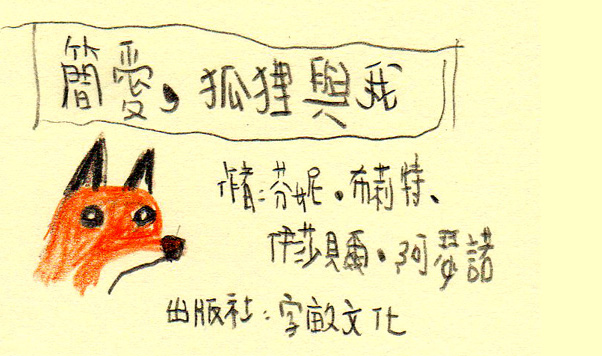 簡愛,狐狸與我
作者:芬妮.布莉特、
伊莎貝爾.阿瑟諾
出版社:字畝文化